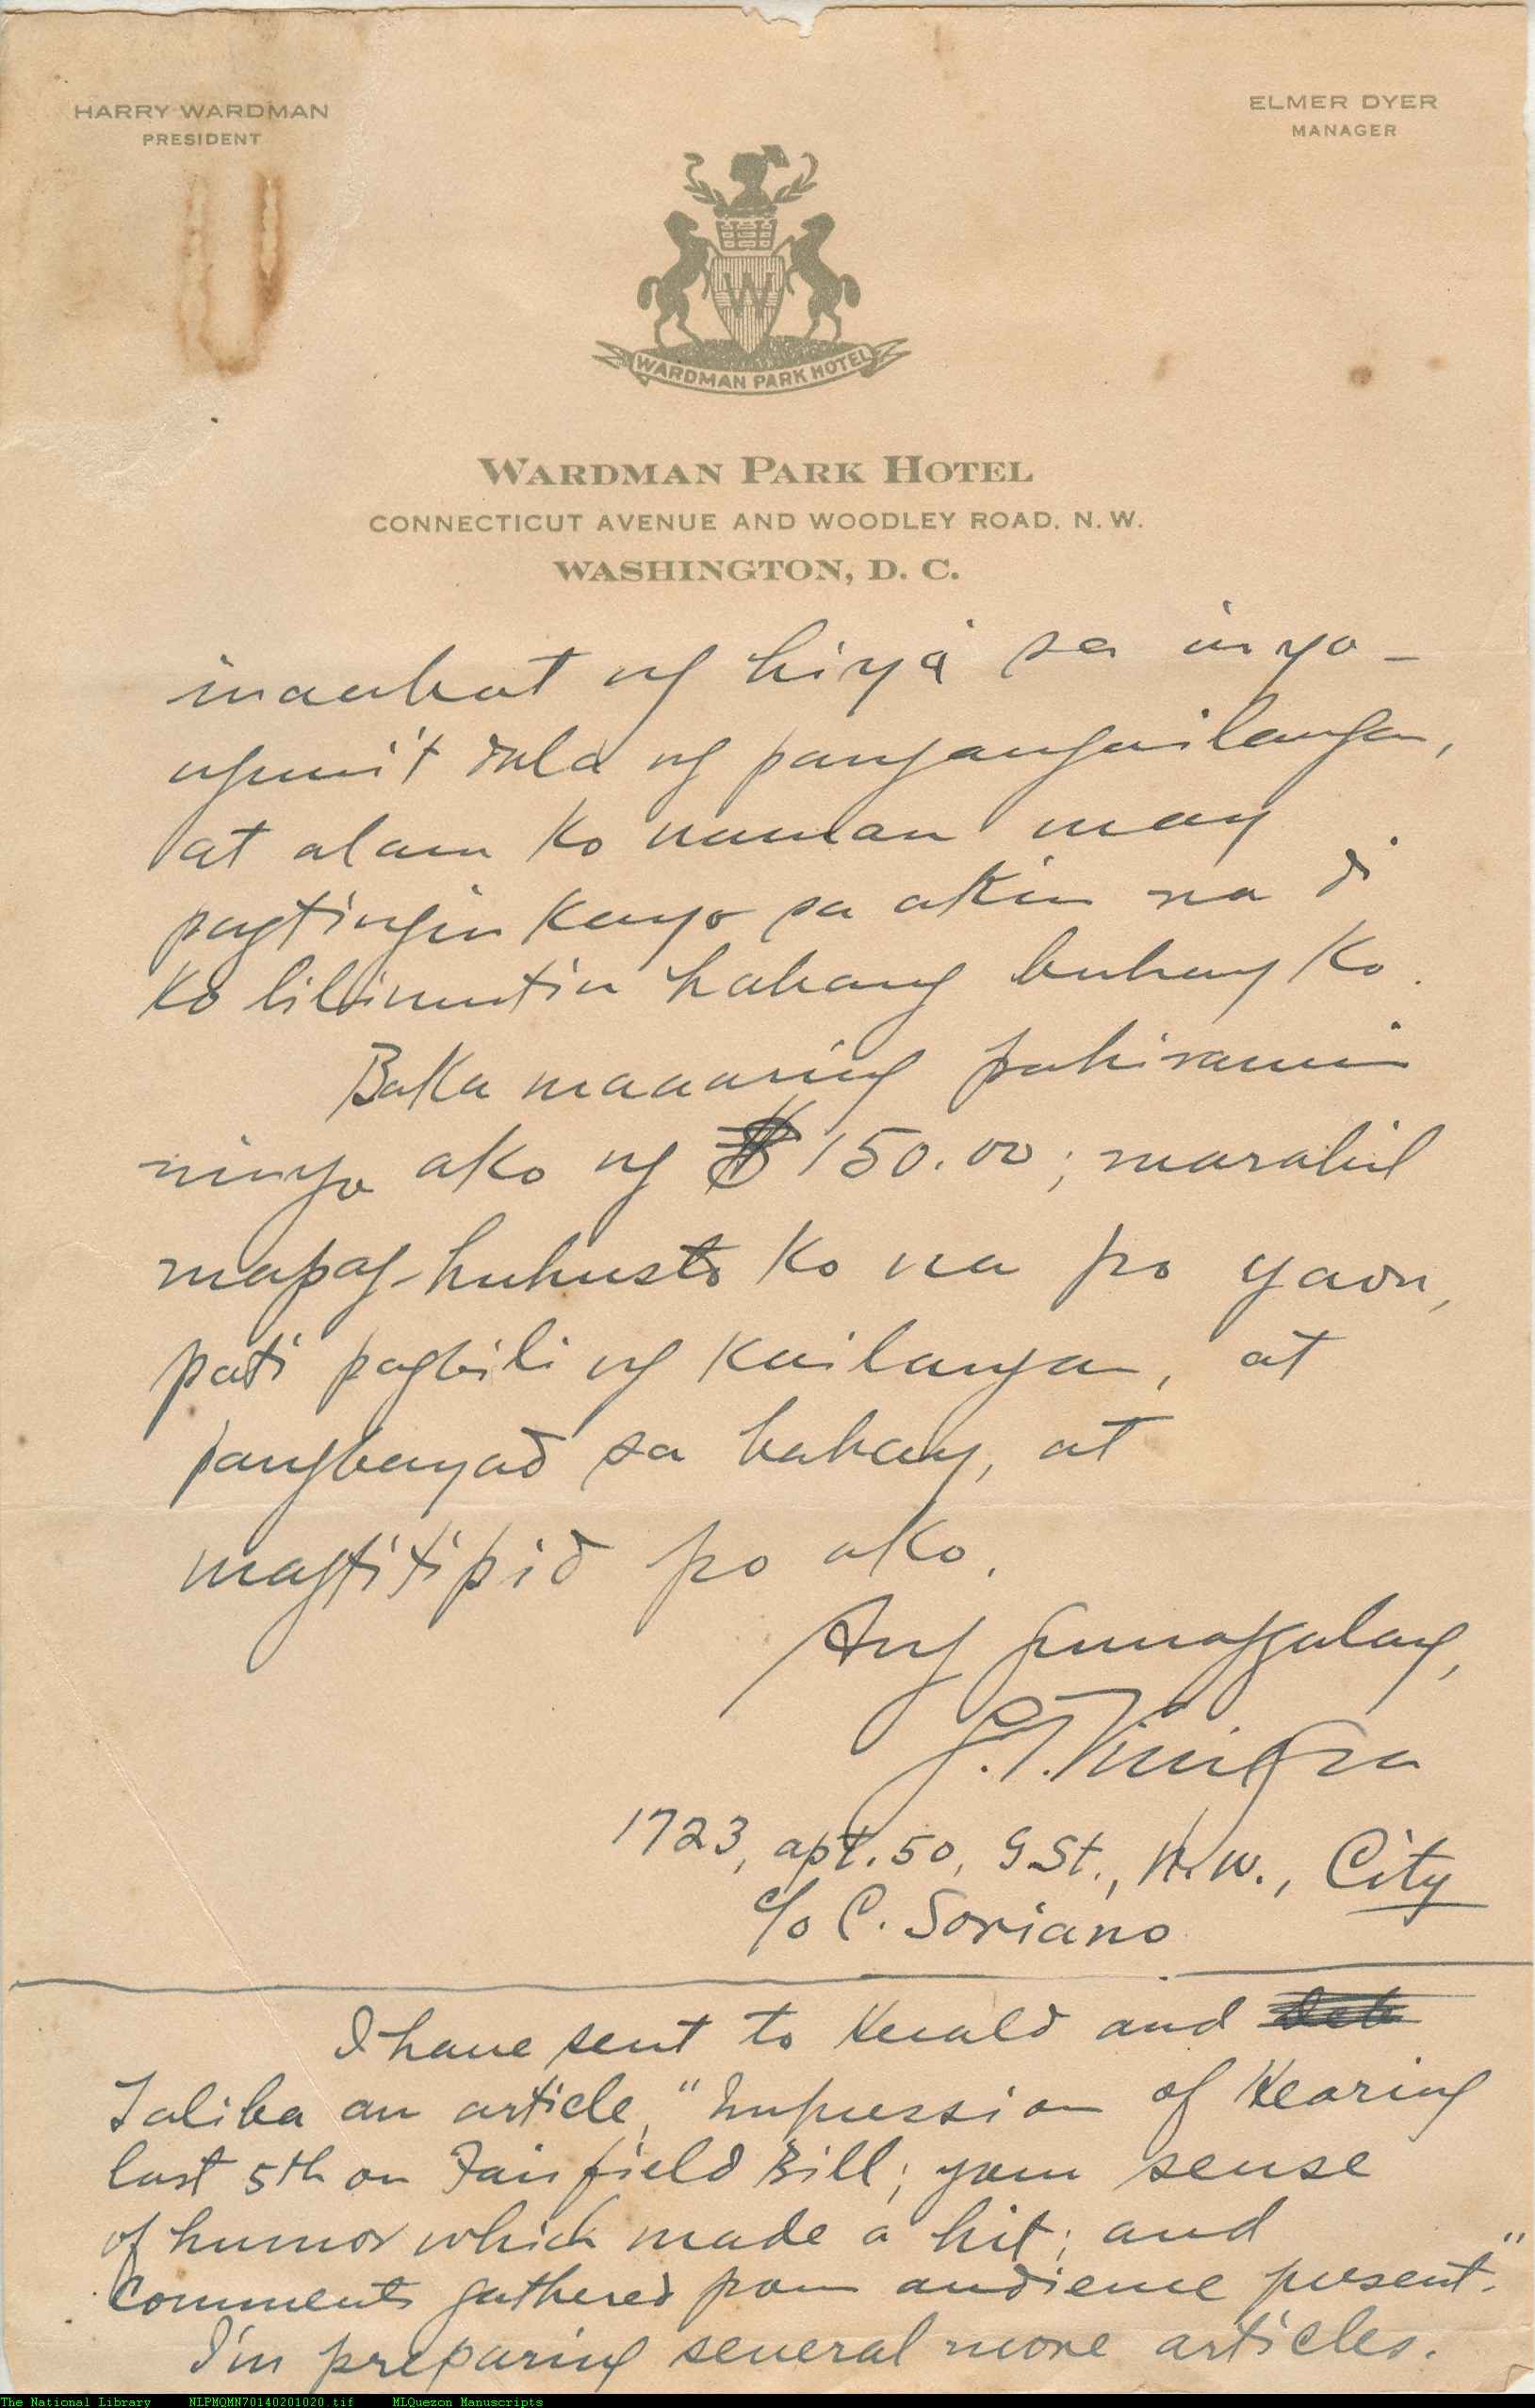 HARRY WARDMAN
PRESIDENT
ELMER DYER
MANAGER
W
WARDMAN PARK HOTEL
WARDMAN PARK HOTEL
CONNECTICUT AVENUE AND WOODLEY ROAD, N.W.
WASHINGTON, D. C.
inaabot ng hiya sa inyo -
nguni't dala ng pangangailangan,
at alam ko naman may
pagtingin kayo sa akin na di
ko lilimutin habang buhay ko.
Baka maaaring pahiramin
ninyo ako ng $150.00; marahil
mapag-huhusto ko na po yaon,
pati pagbili ng kailangan, at
pangbayad sa bahay, at
magtitipid po ako.
Ang gumagalang,
1723, apt. 50, G St., N.W., City
c/o C. Soriano
I have sent to Herald and
Taliba an article, "Impression of Hearing
last 5th on Fairfield Bill; your sense
of humor which made a hit; and
comments gathered from audience present."
I'm preparing several more articles.
The National Library NLPMQMN70140201020.tif MLQuezon Manuscripts